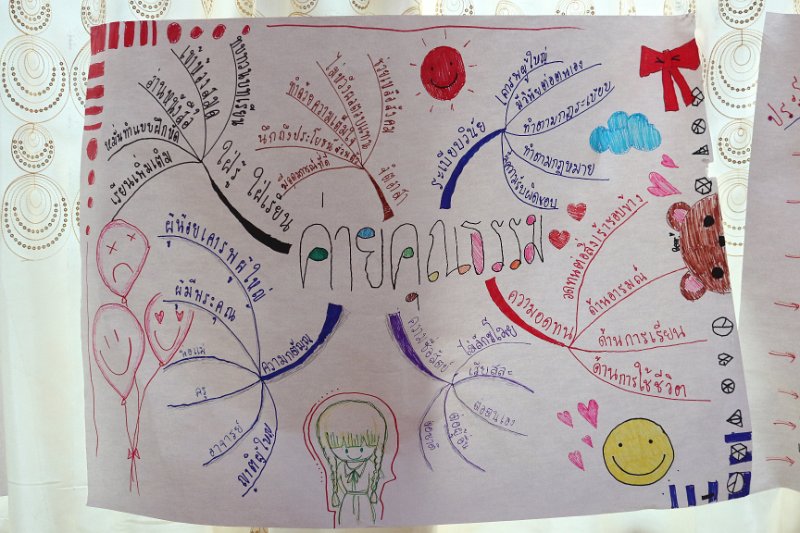 ค่ายคุณธรรม
ใฝ่รู้ ใฝ่เรียน
ทบทวนบทเรียน
เข้าห้องสมุด
อ่านหนังสือ
หมั่นทำแบบฝึกหัด
เรียนเพิ่มเติม
จิตอาสา
ช่วยเหลือสังคม
ไม่หวังผลตอบแทน
ทำด้วยความเต็มใจ
นึกถึงประโยชน์ส่วนรวม
ระเบียบวินัย
เคารพผู้ใหญ่
มีวินัยต่อตนเอง
ทำตามกฎระเบียบ
ทำตามกฎหมาย
มีความรับผิดชอบ
ความกตัญญู
ผู้น้อยเคารพผู้ใหญ่
ผู้มีพระคุณ
พ่อแม่
ครู
อาจารย์
ญาติผู้ใหญ่
ความซื่อสัตย์
ไม่ลักขโมย
เสียสละ
ต่อตนเอง
ต่อผู้อื่น
ความอดทน
อดทนต่อสิ่งเร้ารอบข้าง
ด้านอารมณ์
ด้านการเรียน
ด้านการใช้ชีวิต